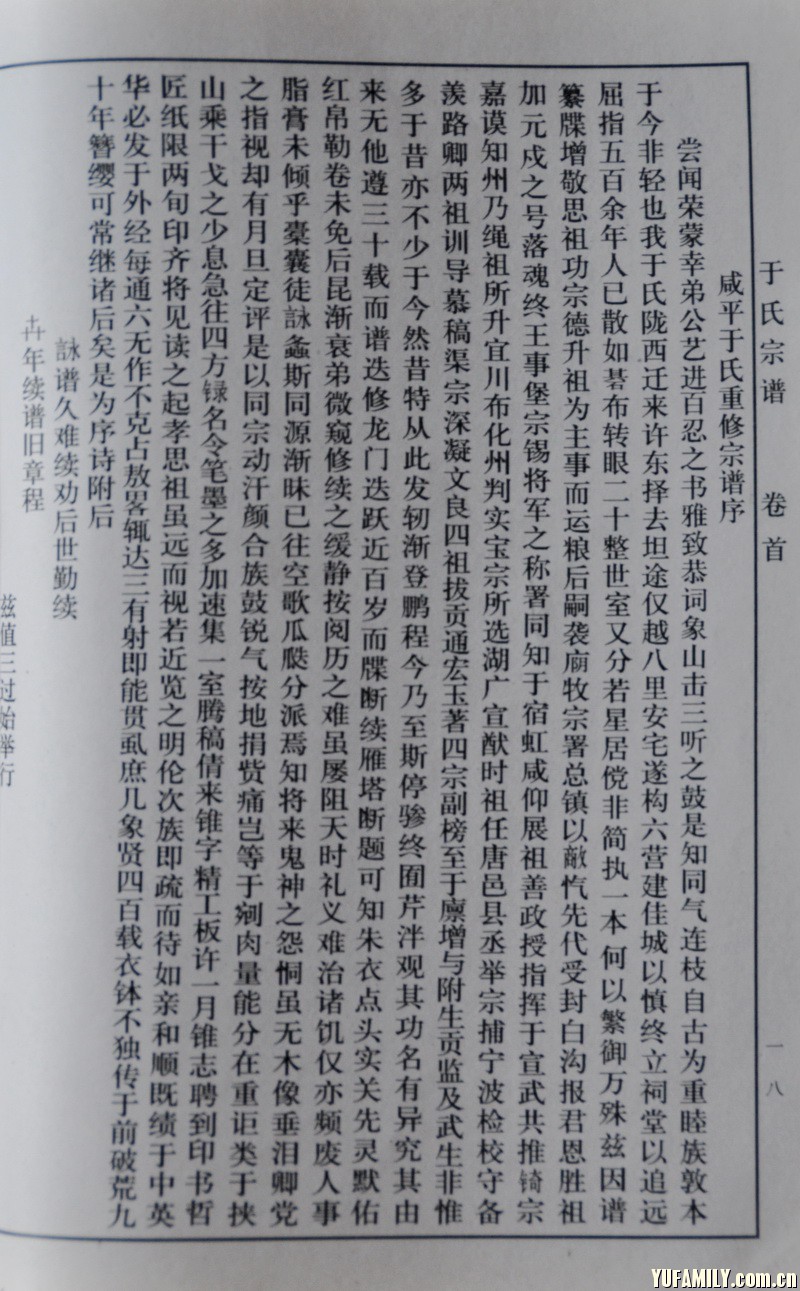 于氏宗谱 卷首 一八
咸平于氏重修宗谱序
尝闻荣蒙幸弟公艺进百忍之书雅致恭词象山击三听之鼓是知同气连枝自古为重睦族敦本
于今非轻也我于氏陇西迁来许东择去坦途仅越八里安宅遂构六营建佳城以慎终立祠堂以追远
屈指五百余年人已散如碁布转眼二十整世室又分若星居傥非简执一本何以繁御万殊兹因谱
纂牒增敬思祖功宗德升祖为主事而运粮后嗣袭庙牧宗署总镇以敵忾先代受封白沟报君恩胜祖
加元戍之号落魂终王事堡宗锡将军之称署同知于宿虹咸仰展祖善政授指挥于宣武共推锜宗
嘉谟知州乃绳祖所升宜川布化州判实宝宗所选湖广宣猷时祖任唐邑县丞举宗捕宁波检校守备
羡路卿两祖训导慕稿渠宗深凝文良四祖拔贡通宏玉著四宗副榜至于廪增与附生贡监及武生非惟
多于昔亦不少于今然昔特从此发轫渐登鹏程今乃至斯停骖终囿芹泮观其功名有异究其由
来无他遵三十载而谱迭修龙门迭跃近百岁而牒断续雁塔断题可知朱衣点头实关先灵默佑
红帛勒卷未免后昆渐衰弟微窥修续之缓静按阅历之难虽屡阻天时礼义难治诸饥仅亦频废人事
脂膏未倾乎橐囊徒詠螽斯同源渐昧已往空歌瓜瓞分派焉知将来鬼神之怨恫虽无木像垂泪卿党
之指视却有月旦定评是以同宗动汗颜合族鼓锐气按地捐赀痛岂等于剜肉量能分在重讵类于挟
山乘干戈之少息急往四方録名令笔墨之多加速集一室腾稿倩来锥字精工板许一月锥志聘到印书哲
匠纸限两旬印齐将见读之起孝思祖虽远而视若近览之明伦次族即疏而待如亲和顺既绩于中英
华必发于外经每通六无作不克占敖畧辄达三有射即能贯虱庶几象贤四百载衣钵不独传于前破荒九
十年簪缨可常继诸后矣是为序诗附后
詠谱久难续劝后世勤续
卉年续谱旧章程
兹值三过始举行
YUFAMILY.com.cn